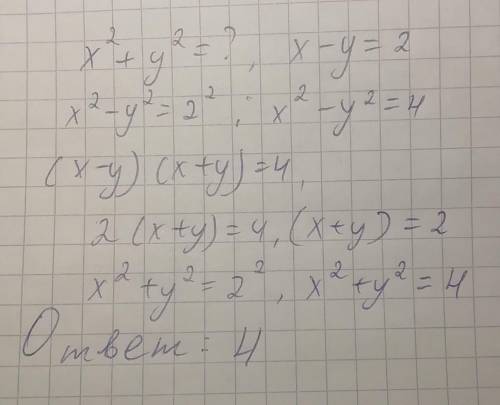 x² + y² = ?, x - y = 2
x² - y² = 2² ; x² - y² = 4
(x - y) (x + y) = 4,
2 (x + y) = 4, (x + y) = 2
x² + y² = 2², x² + y² = 4
Ответ: 4